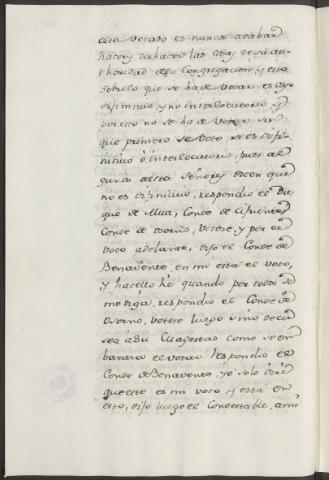 esto Votado es nunca acabar
hacer, deshacer las cosas de su au-
thoridad de la Congregacion, y esto
sobre lo que se ha de Votar es cosa
difinitivo, y no interlocutorio, y
por esto no se ha de Votar sin
que primero se Voto, si es difi-
nitivo ó interlocutorio, pues al-
gunos de esta Señores dicen que
no es difinitivo, respondio el Du-
que de Alva, Conde de Cifuentes
Conde de Osorno, Votese, y por el
poco adelante, dijo el Conde de
Benavente, en mi está el voto,
y hacello hé quando por todos se
me diga, respondio el Conde de
Osorno, votese luego sino decir
sea a Su Magestad como se em-
baraza el votar respondio el
Conde de Benavente, yo solo diré
que este es mi voto, y está en
esto, dijo luego el Condestable, a mi